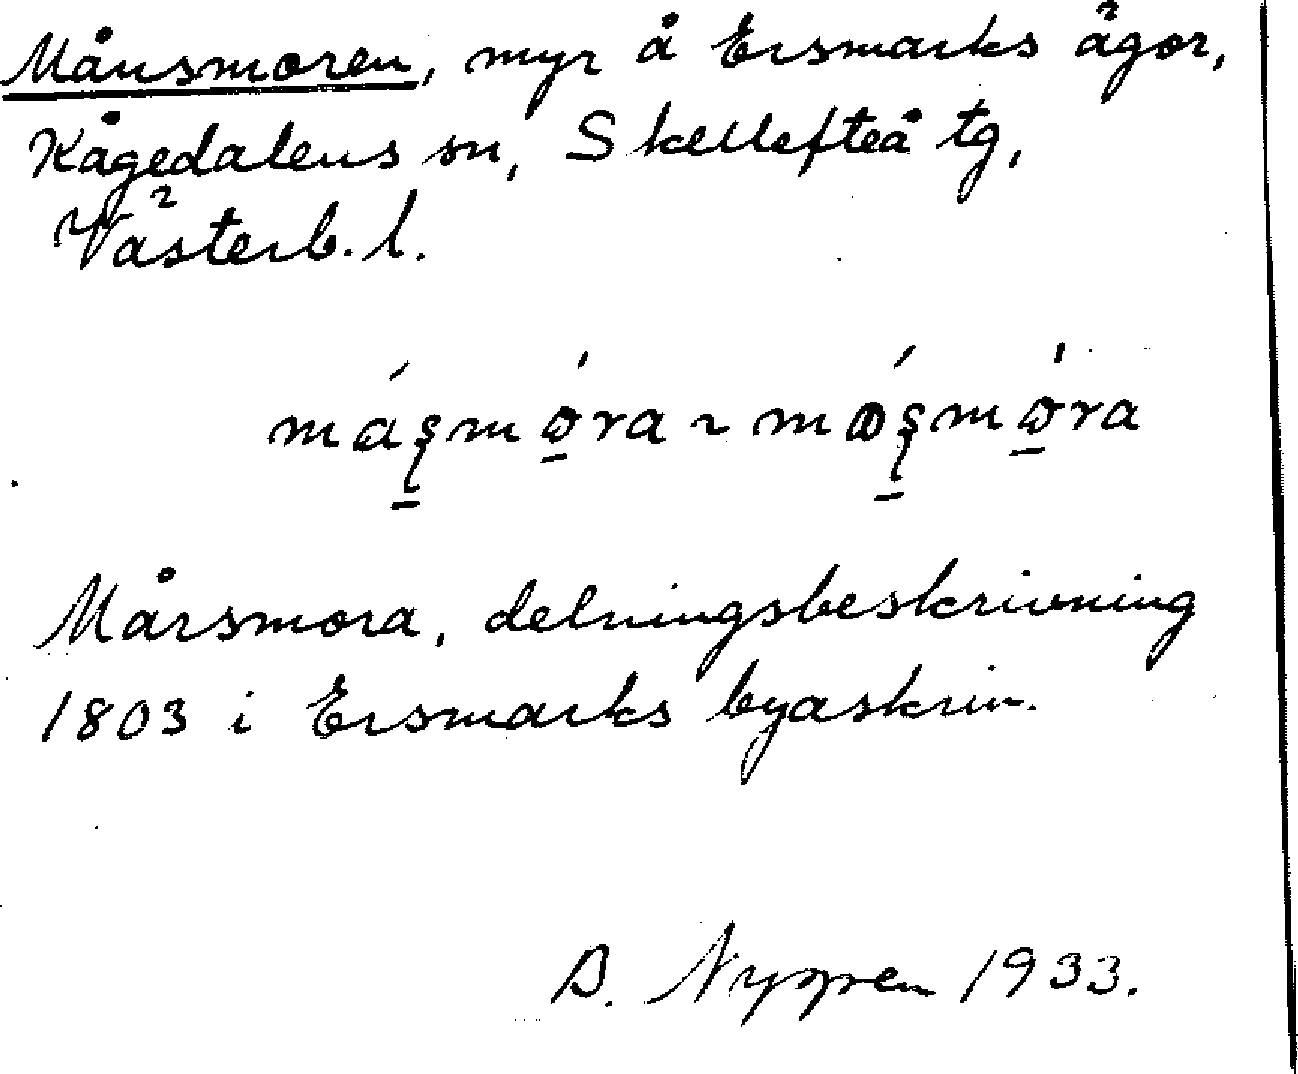 Månsmoren, myr å Ersmarks ägor,
Kågedalens sn, Skellefteå tg,
Västerb. l.
Mårsmora, delningsbeskrivning
1803 i Ersmarks byaskrin.
1933.